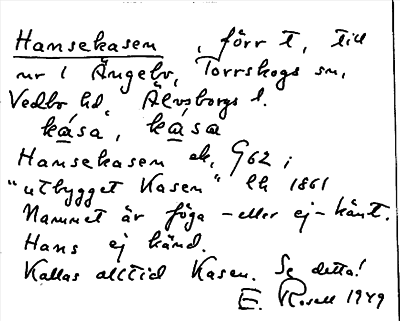 Hansekasen, förr t, till
nr 1 Ängebo, Torrskogs sn,
Vedbo hd, Älvsborgs l.
kása, kása
Hansekasen ek, G62;
"utbygget Kasen" lk 1861
Namnet är föga - eller ej - känt.
Hans ej känd.
Kallas alltid Kasen. Se detta!
E. Rosell 1949